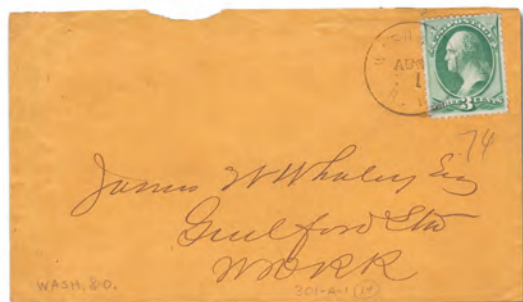 AUG
1
3 CENTS
74
James W Whaley Esq
Guilford Sta
W & O R R
WASH, & O.
301-A-1(14)